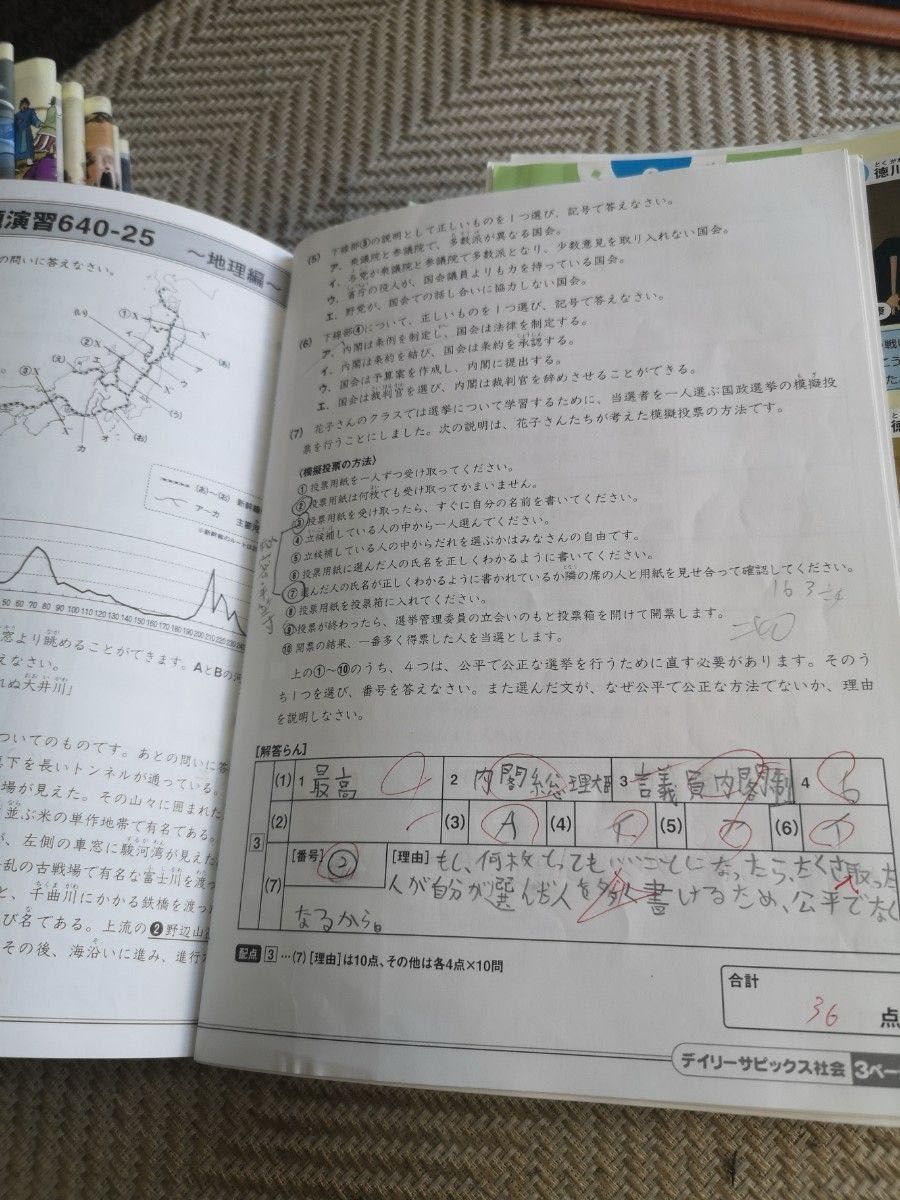 演習640-25
～地理編～
の問いに答えなさい。
① X
(い)
②
(え)
③
(あ)
(う)
(お)
ア
イ
ウ
エ
オ
カ
(あ)～(お) 新幹線
ア～カ 主要
※新幹線のルートは
50 60 70 80 90 100 110 120 130 140 150 160 170 180 190 200 210 220 230 240
窓より眺めることができます。AとBの河
えなさい。
れぬ大井川」
ついてのものです。あとの問いに答
真下を長いトンネルが通っている。
場が見えた。その山々に囲まれた
並ぶ米の単作地帯で有名である。
が、左側の車窓に駿河湾が見えた
乱の古戦場で有名な富士川を渡っ
と、千曲川にかかる鉄橋を渡っ
び名である。上流の❷野辺山
その後、海沿いに進み、進行
(5) 下線部③の説明として正しいものを1つ選び、記号で答えなさい。
ア．衆議院と参議院で、多数派が異なる国会。
イ．与党が衆議院と参議院で多数派となり、少数意見を取り入れない国会。
ウ．省庁の役人が、国会議員よりも力を持っている国会。
エ．野党が、国会での話し合いに協力しない国会。
(6) 下線部④について、正しいものを1つ選び、記号で答えなさい。
ア．内閣は条例を制定し、国会は法律を制定する。
イ．内閣は条約を結び、国会は条約を承認する。
ウ．国会は予算案を作成し、内閣に提出する。
エ．国会は裁判官を選び、内閣は裁判官を辞めさせることができる。
(7) 花子さんのクラスでは選挙について学習するために、当選者を一人選ぶ国政選挙の模擬投
票を行うことにしました。次の説明は、花子さんたちが考えた模擬投票の方法です。
〈模擬投票の方法〉
①投票用紙を一人ずつ受け取ってください。
②投票用紙は何枚でも受け取ってかまいません。
③投票用紙を受け取ったら、すぐに自分の名前を書いてください。
④立候補している人の中から一人選んでください。
⑤立候補している人の中からだれを選ぶかはみなさんの自由です。
⑥投票用紙に選んだ人の氏名を正しくわかるように書いてください。
⑦選んだ人の氏名が正しくわかるように書かれているか隣の席の人と用紙を見せ合って確認してください。
⑧投票用紙を投票箱に入れてください。
⑨投票が終わったら、選挙管理委員の立会いのもと投票箱を開けて開票します。
⑩開票の結果、一番多く得票した人を当選とします。
上の①～⑩のうち、4つは、公平で公正な選挙を行うために直す必要があります。そのう
ち1つを選び、番号を答えなさい。また選んだ文が、なぜ公平で公正な方法でないか、理由
を説明しなさい。
[解答らん]
3
(1) 1 最高 2 内閣総理大臣 3 議員内閣制 4
(2) (3) A (4) イ (5) ア (6) イ
(7) [番号] ② [理由] もし、何枚もっても いいことになったら、たくさ取った
人が自分が選んだ人を多く書けるため、公平でなく
なるから。
配点 3 …(7)[理由]は10点、その他は各4点×10問
合計
36 点
デイリーサピックス社会 3ペー
徳川